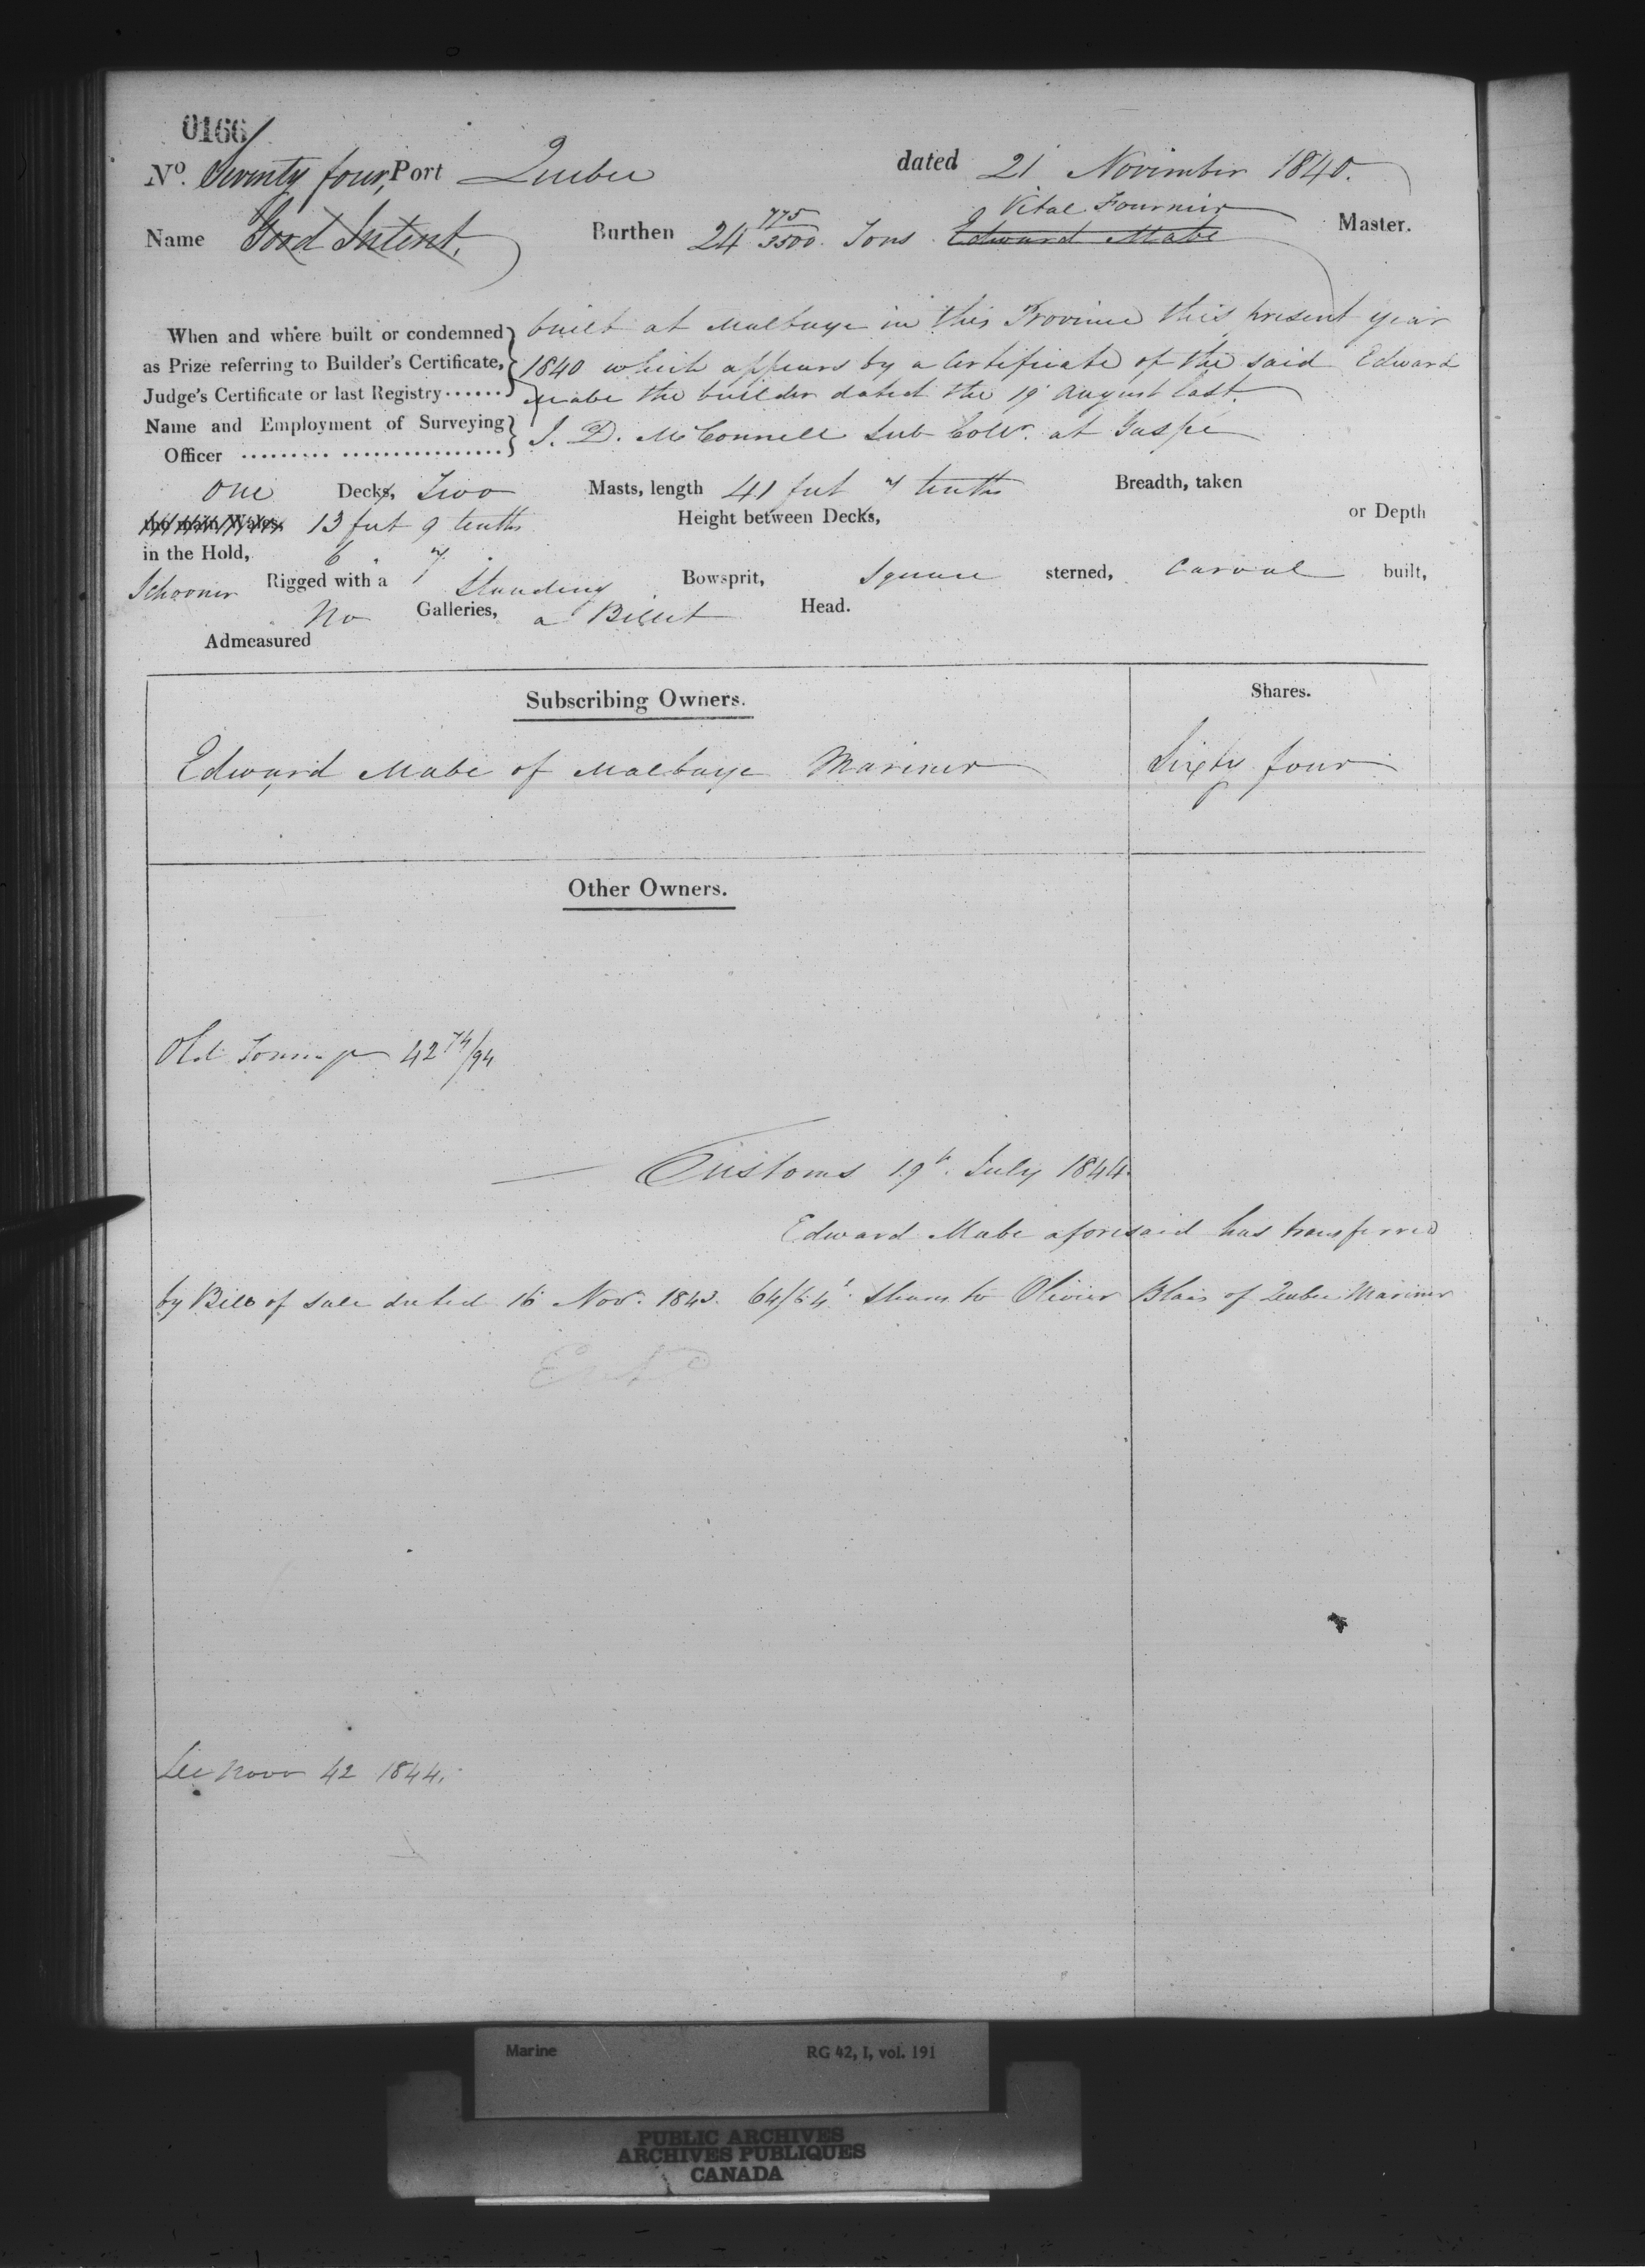 0166
No. Seventy four, Port Quebec dated 21 November 1840.
Vital Fournier
Name Good Intent, Burthen 24 775/3500 Tons Edward Mabe Master.
When and where built or condemned as Prize referring to Builder's Certificate, Judge's Certificate or last Registry......
built at Malbaye in this Province this present year
1840 which appears by a Certificate of the said Edward
Mabe the builder dated the 19 August last.
Name and Employment of Surveying Officer
J. D. McConnell Sub Collr. at Gaspé
One Decks, Two Masts, length 41 feet 7 tenths Breadth, taken
the main Wales, 13 feet 9 tenths Height between Decks, or Depth
in the Hold, 6 " 7
Schooner Rigged with a Standing Bowsprit, Square sterned, Carvel built,
No Galleries, a Billet Head.
Admeasured
Subscribing Owners. Shares.
Edward Mabe of Malbaye Mariner Sixty four
Other Owners.
Old Tonnage 42 74/94
Customs 19th. July 1844.
Edward Mabe aforesaid has transferred
by Bill of Sale dated 16 Novr. 1843. 64/64th Shares to Olivier Blais of Quebec Mariner
See Novo 42 1844.
Marine RG 42, I, vol. 191
PUBLIC ARCHIVES
ARCHIVES PUBLIQUES
CANADA